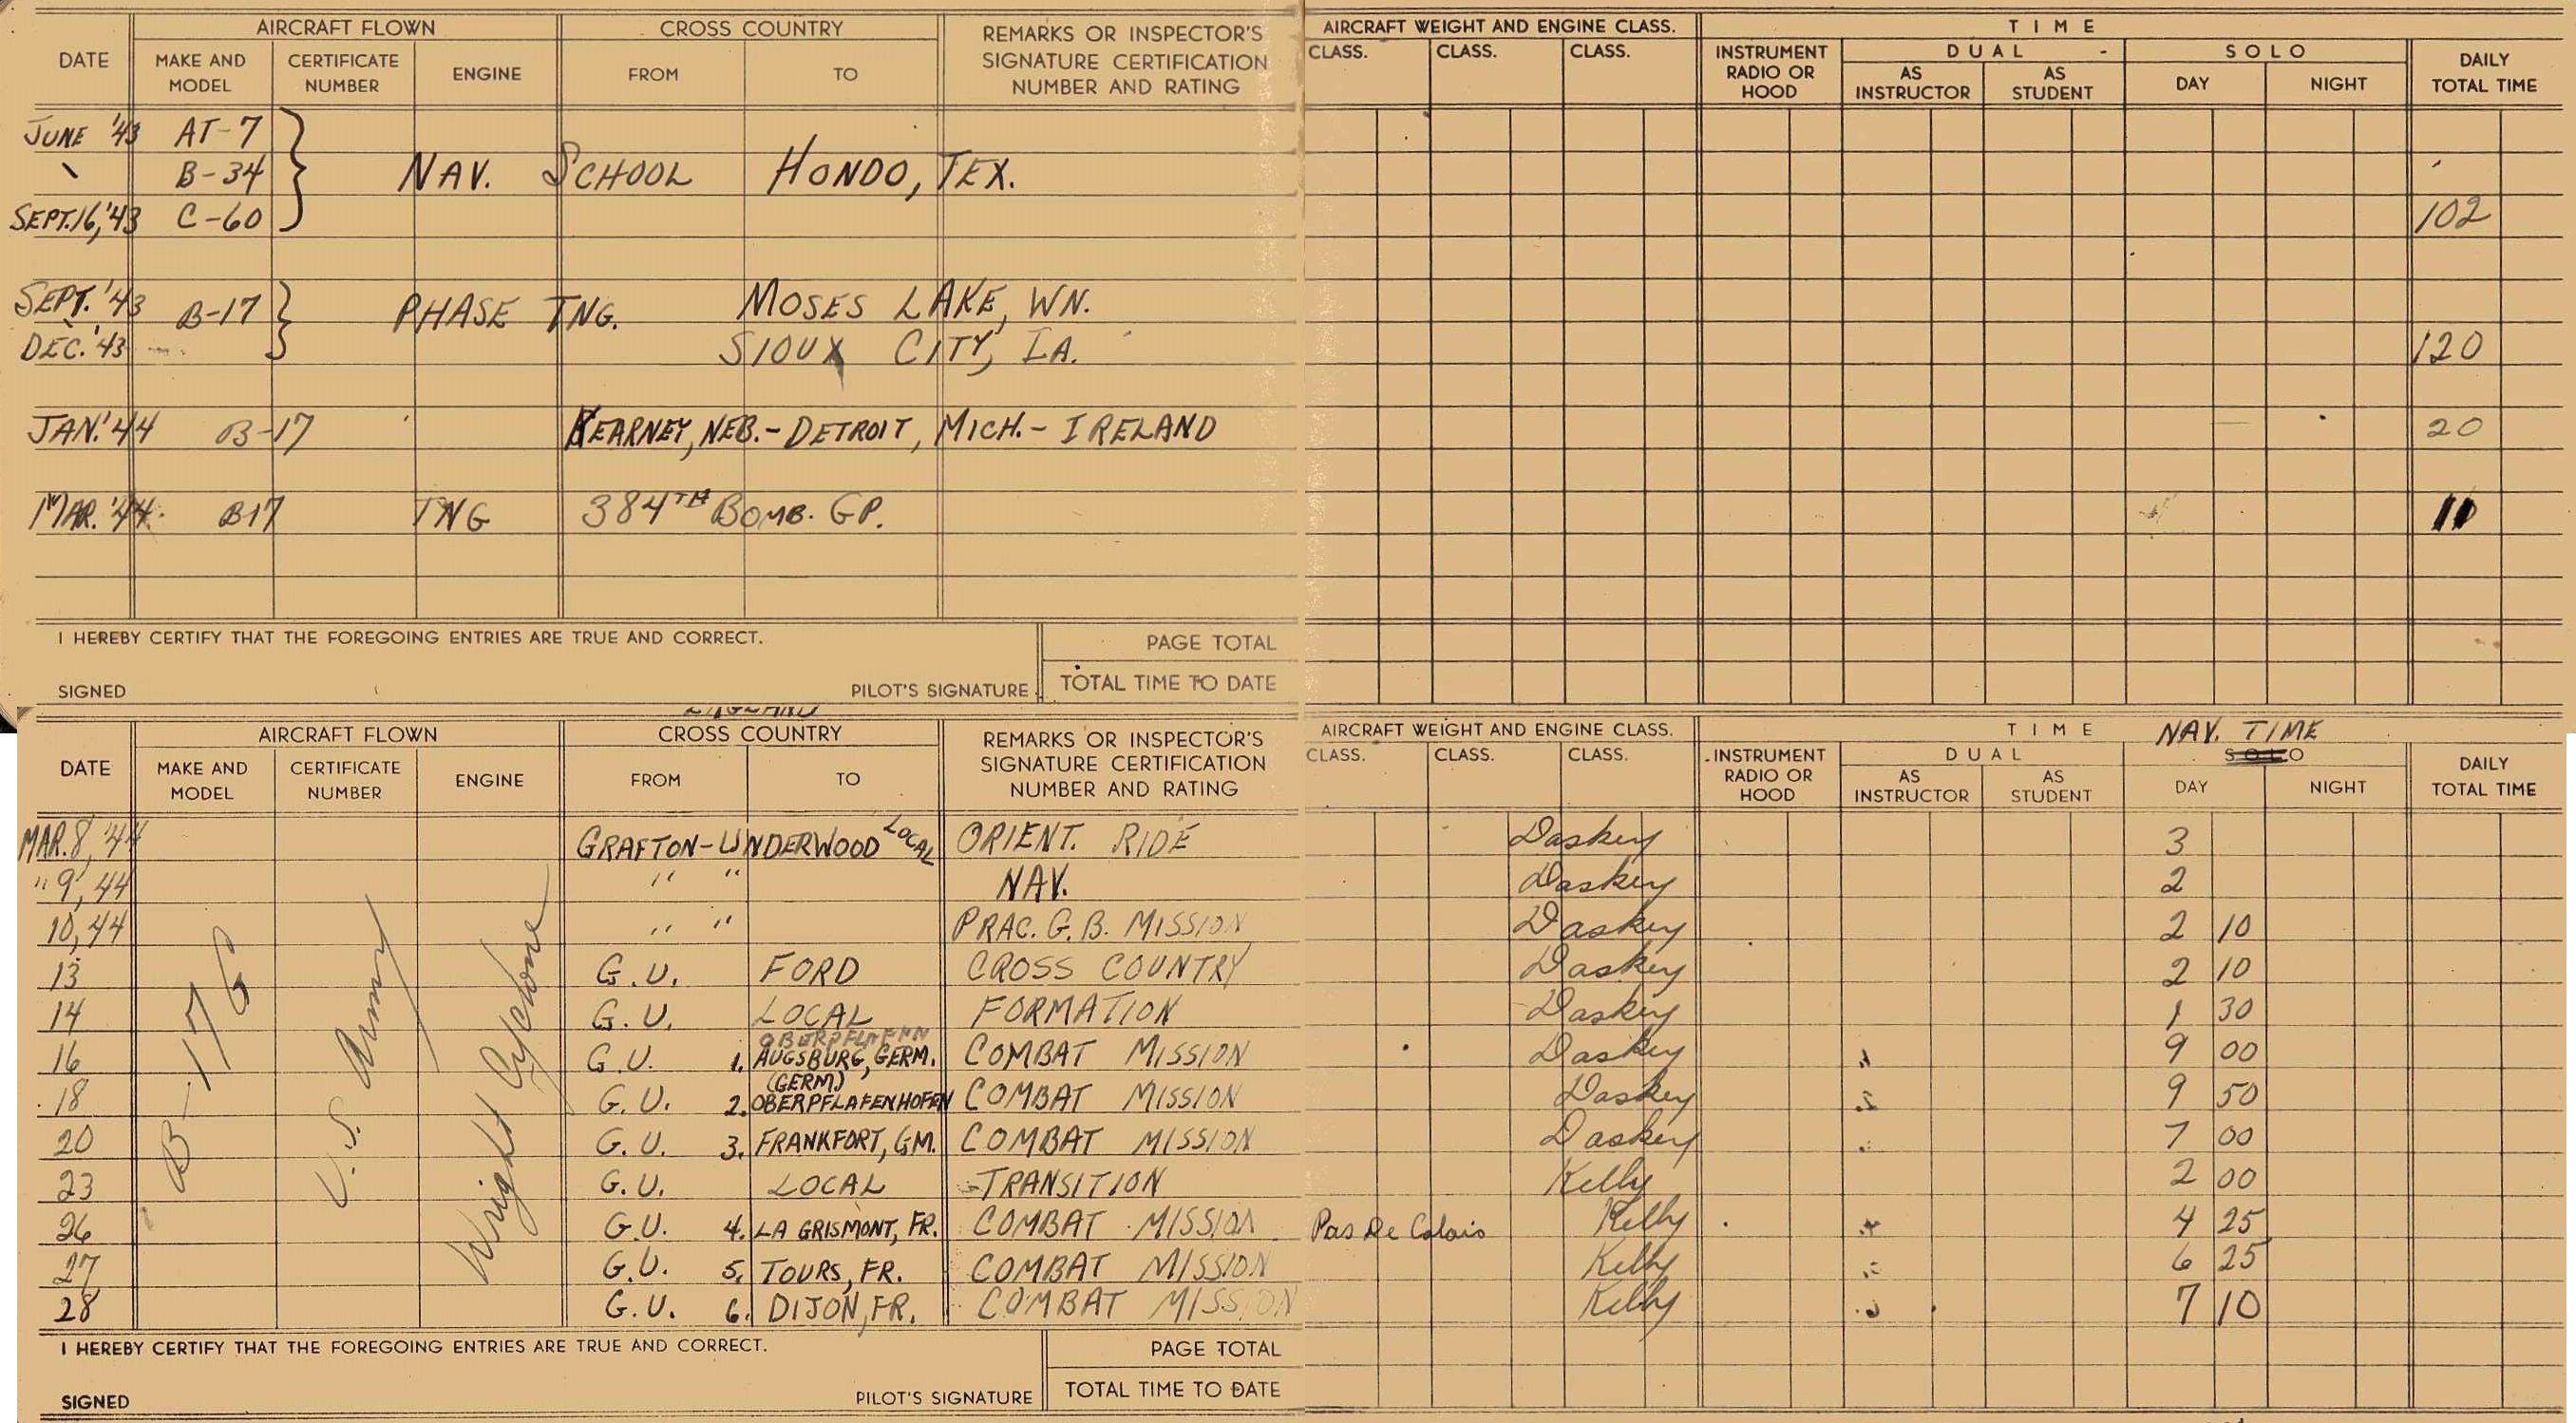 AIRCRAFT FLOWN CROSS COUNTRY REMARKS OR INSPECTOR'S SIGNATURE CERTIFICATION NUMBER AND RATING AIRCRAFT WEIGHT AND ENGINE CLASS. TIME
DATE MAKE AND MODEL CERTIFICATE NUMBER ENGINE FROM TO CLASS. CLASS. CLASS. INSTRUMENT RADIO OR HOOD DUAL - AS INSTRUCTOR AS STUDENT SOLO DAY NIGHT DAILY TOTAL TIME
JUNE '43 AT-7
B-34 NAV. SCHOOL HONDO, TEX.
SEPT. 16, '43 C-60 102
SEPT. '43 B-17 PHASE TNG. MOSES LAKE, WN.
DEC. '43 SIOUX CITY, IA. 120
JAN. '44 B-17 KEARNEY, NEB. - DETROIT, MICH. - IRELAND 20
MAR. '44. B17 TNG 384TH BOMB. GP.
I HEREBY CERTIFY THAT THE FOREGOING ENTRIES ARE TRUE AND CORRECT. PAGE TOTAL
SIGNED PILOT'S SIGNATURE TOTAL TIME TO DATE
ENGLAND
AIRCRAFT FLOWN CROSS COUNTRY REMARKS OR INSPECTOR'S SIGNATURE CERTIFICATION NUMBER AND RATING AIRCRAFT WEIGHT AND ENGINE CLASS. TIME NAV. TIME
DATE MAKE AND MODEL CERTIFICATE NUMBER ENGINE FROM TO CLASS. CLASS. CLASS. INSTRUMENT RADIO OR HOOD DUAL AS INSTRUCTOR AS STUDENT SOLO DAY NIGHT DAILY TOTAL TIME
B-17G U.S. Army Wright Cyclone
MAR. 8, '44 GRAFTON-UNDERWOOD LOCAL ORIENT. RIDE Daskey 3
" 9, 44 " " NAV. Daskey 2
10, 44 " " PRAC. G.B. MISSION Daskey 2 10
13 G.U. FORD CROSS COUNTRY Daskey 2 10
14 G.U. LOCAL FORMATION Daskey 1 30
16 G.U. 1. AUGSBURG, GERM. COMBAT MISSION Daskey 9 00
18 G.U. 2. OBERPFLAFENHOFEN (GERM.) COMBAT MISSION Daskey 9 50
20 G.U. 3. FRANKFORT, GM. COMBAT MISSION Daskey 7 00
23 G.U. LOCAL TRANSITION Kelly 2 00
26 G.U. 4. LA GRISMONT, FR. COMBAT MISSION Pas De Calais Kelly 4 25
27 G.U. 5. TOURS, FR. COMBAT MISSION Kelly 6 25
28 G.U. 6. DIJON, FR. COMBAT MISSION Kelly 7 10
I HEREBY CERTIFY THAT THE FOREGOING ENTRIES ARE TRUE AND CORRECT. PAGE TOTAL
SIGNED PILOT'S SIGNATURE TOTAL TIME TO DATE